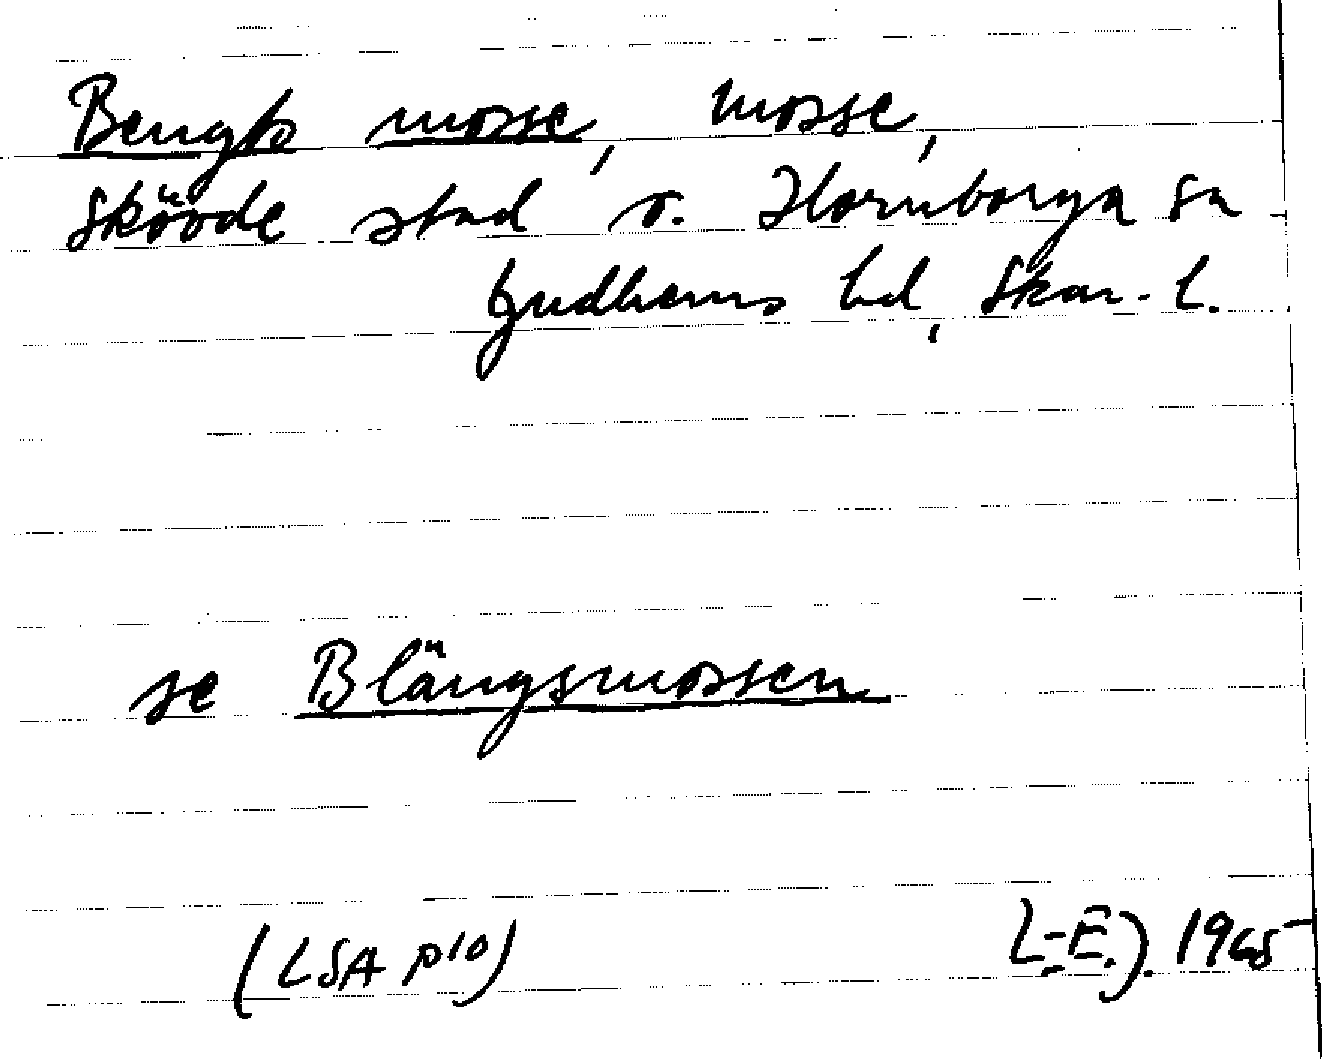 Bengts mosse, mosse,
Skövde stad o. Hornborga sn
Gudhems hd, Skar. l.
se Blängsmossen
(LSA p10) L-E.J. 1965